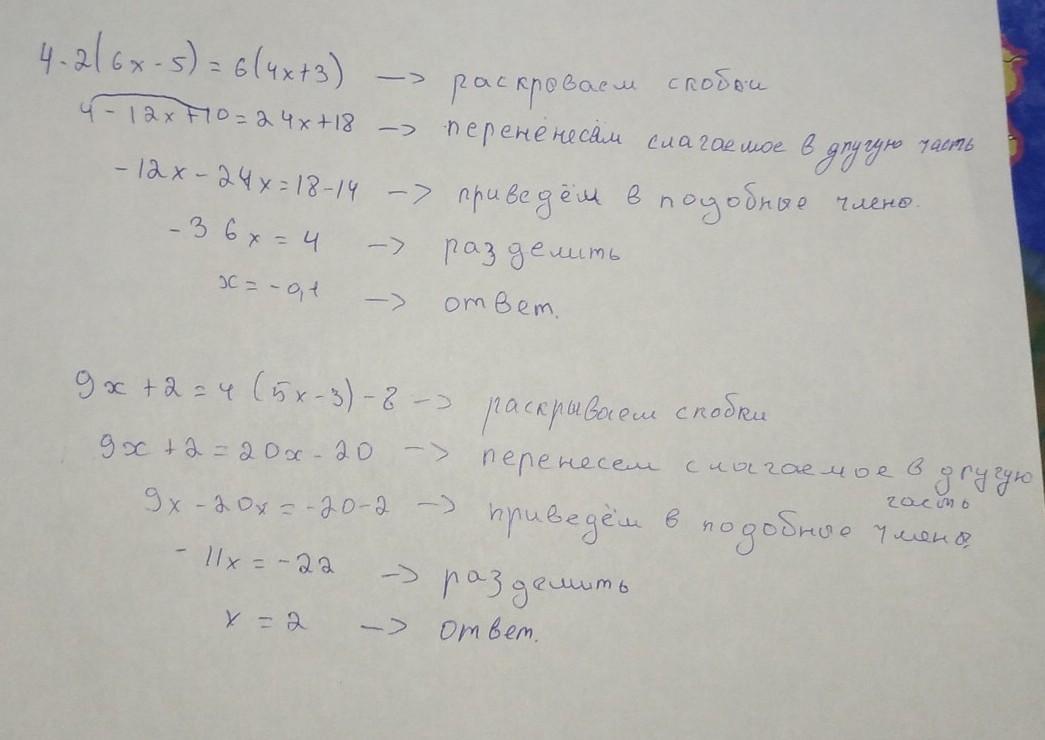 4-2(6x-5)=6(4x+3) —> раскроваем скобки
4-12x+10=24x+18 —> перенёнесём слагаемое в другую часть
-12x-24x=18-14 —> приведём в подобные члено.
-36x=4 —> разделить
x=-0,1 —> ответ.
9x+2=4(5x-3)-8 —> раскрываем скобки
9x+2=20x-20 —> перенесем слагаемое в другую
часть
9x-20x=-20-2 —> приведём в подобные члено.
-11x=-22 —> разделить
x=2 —> ответ.